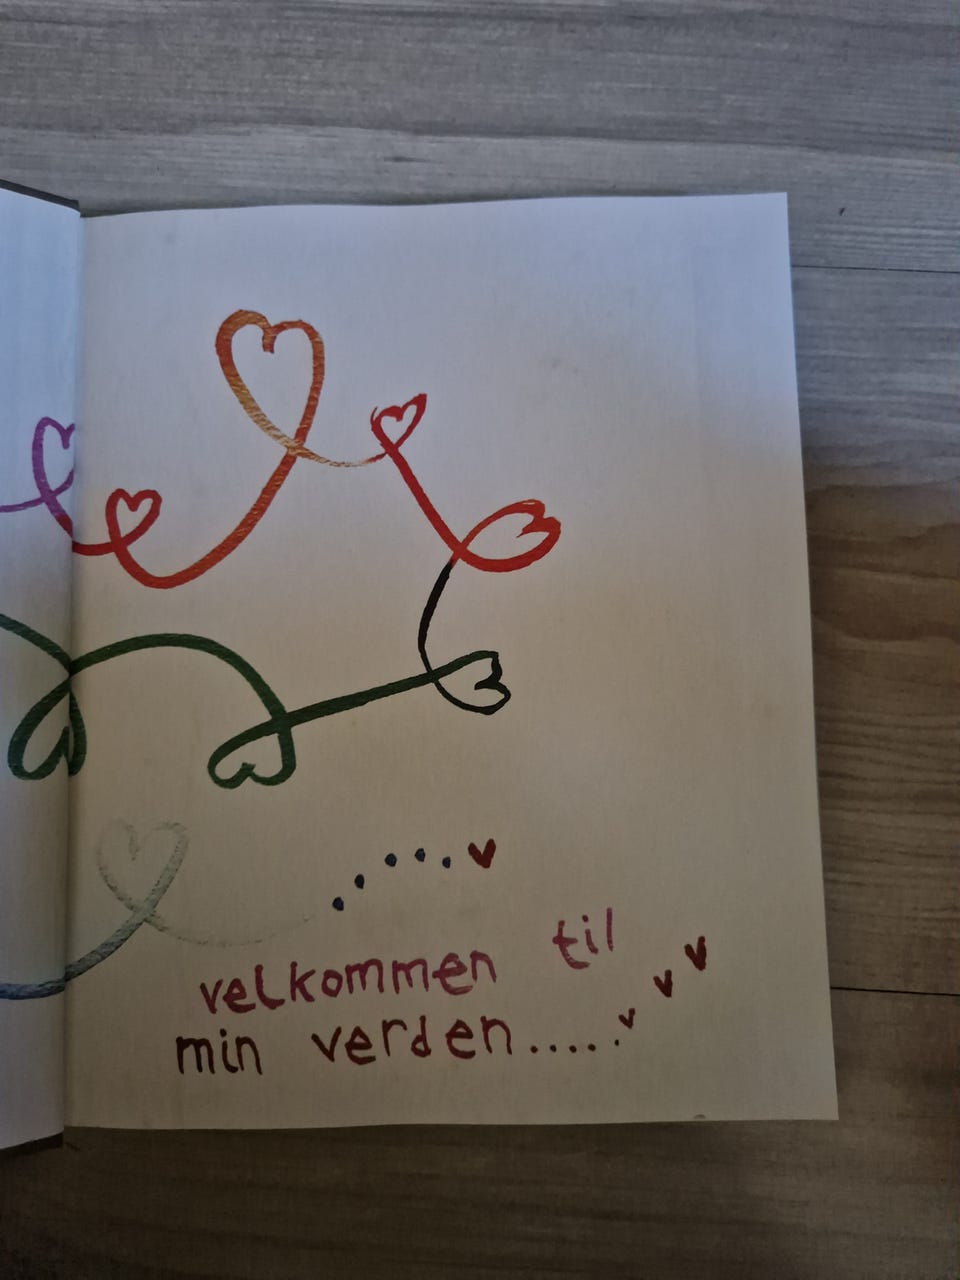 velkommen til
min verden......